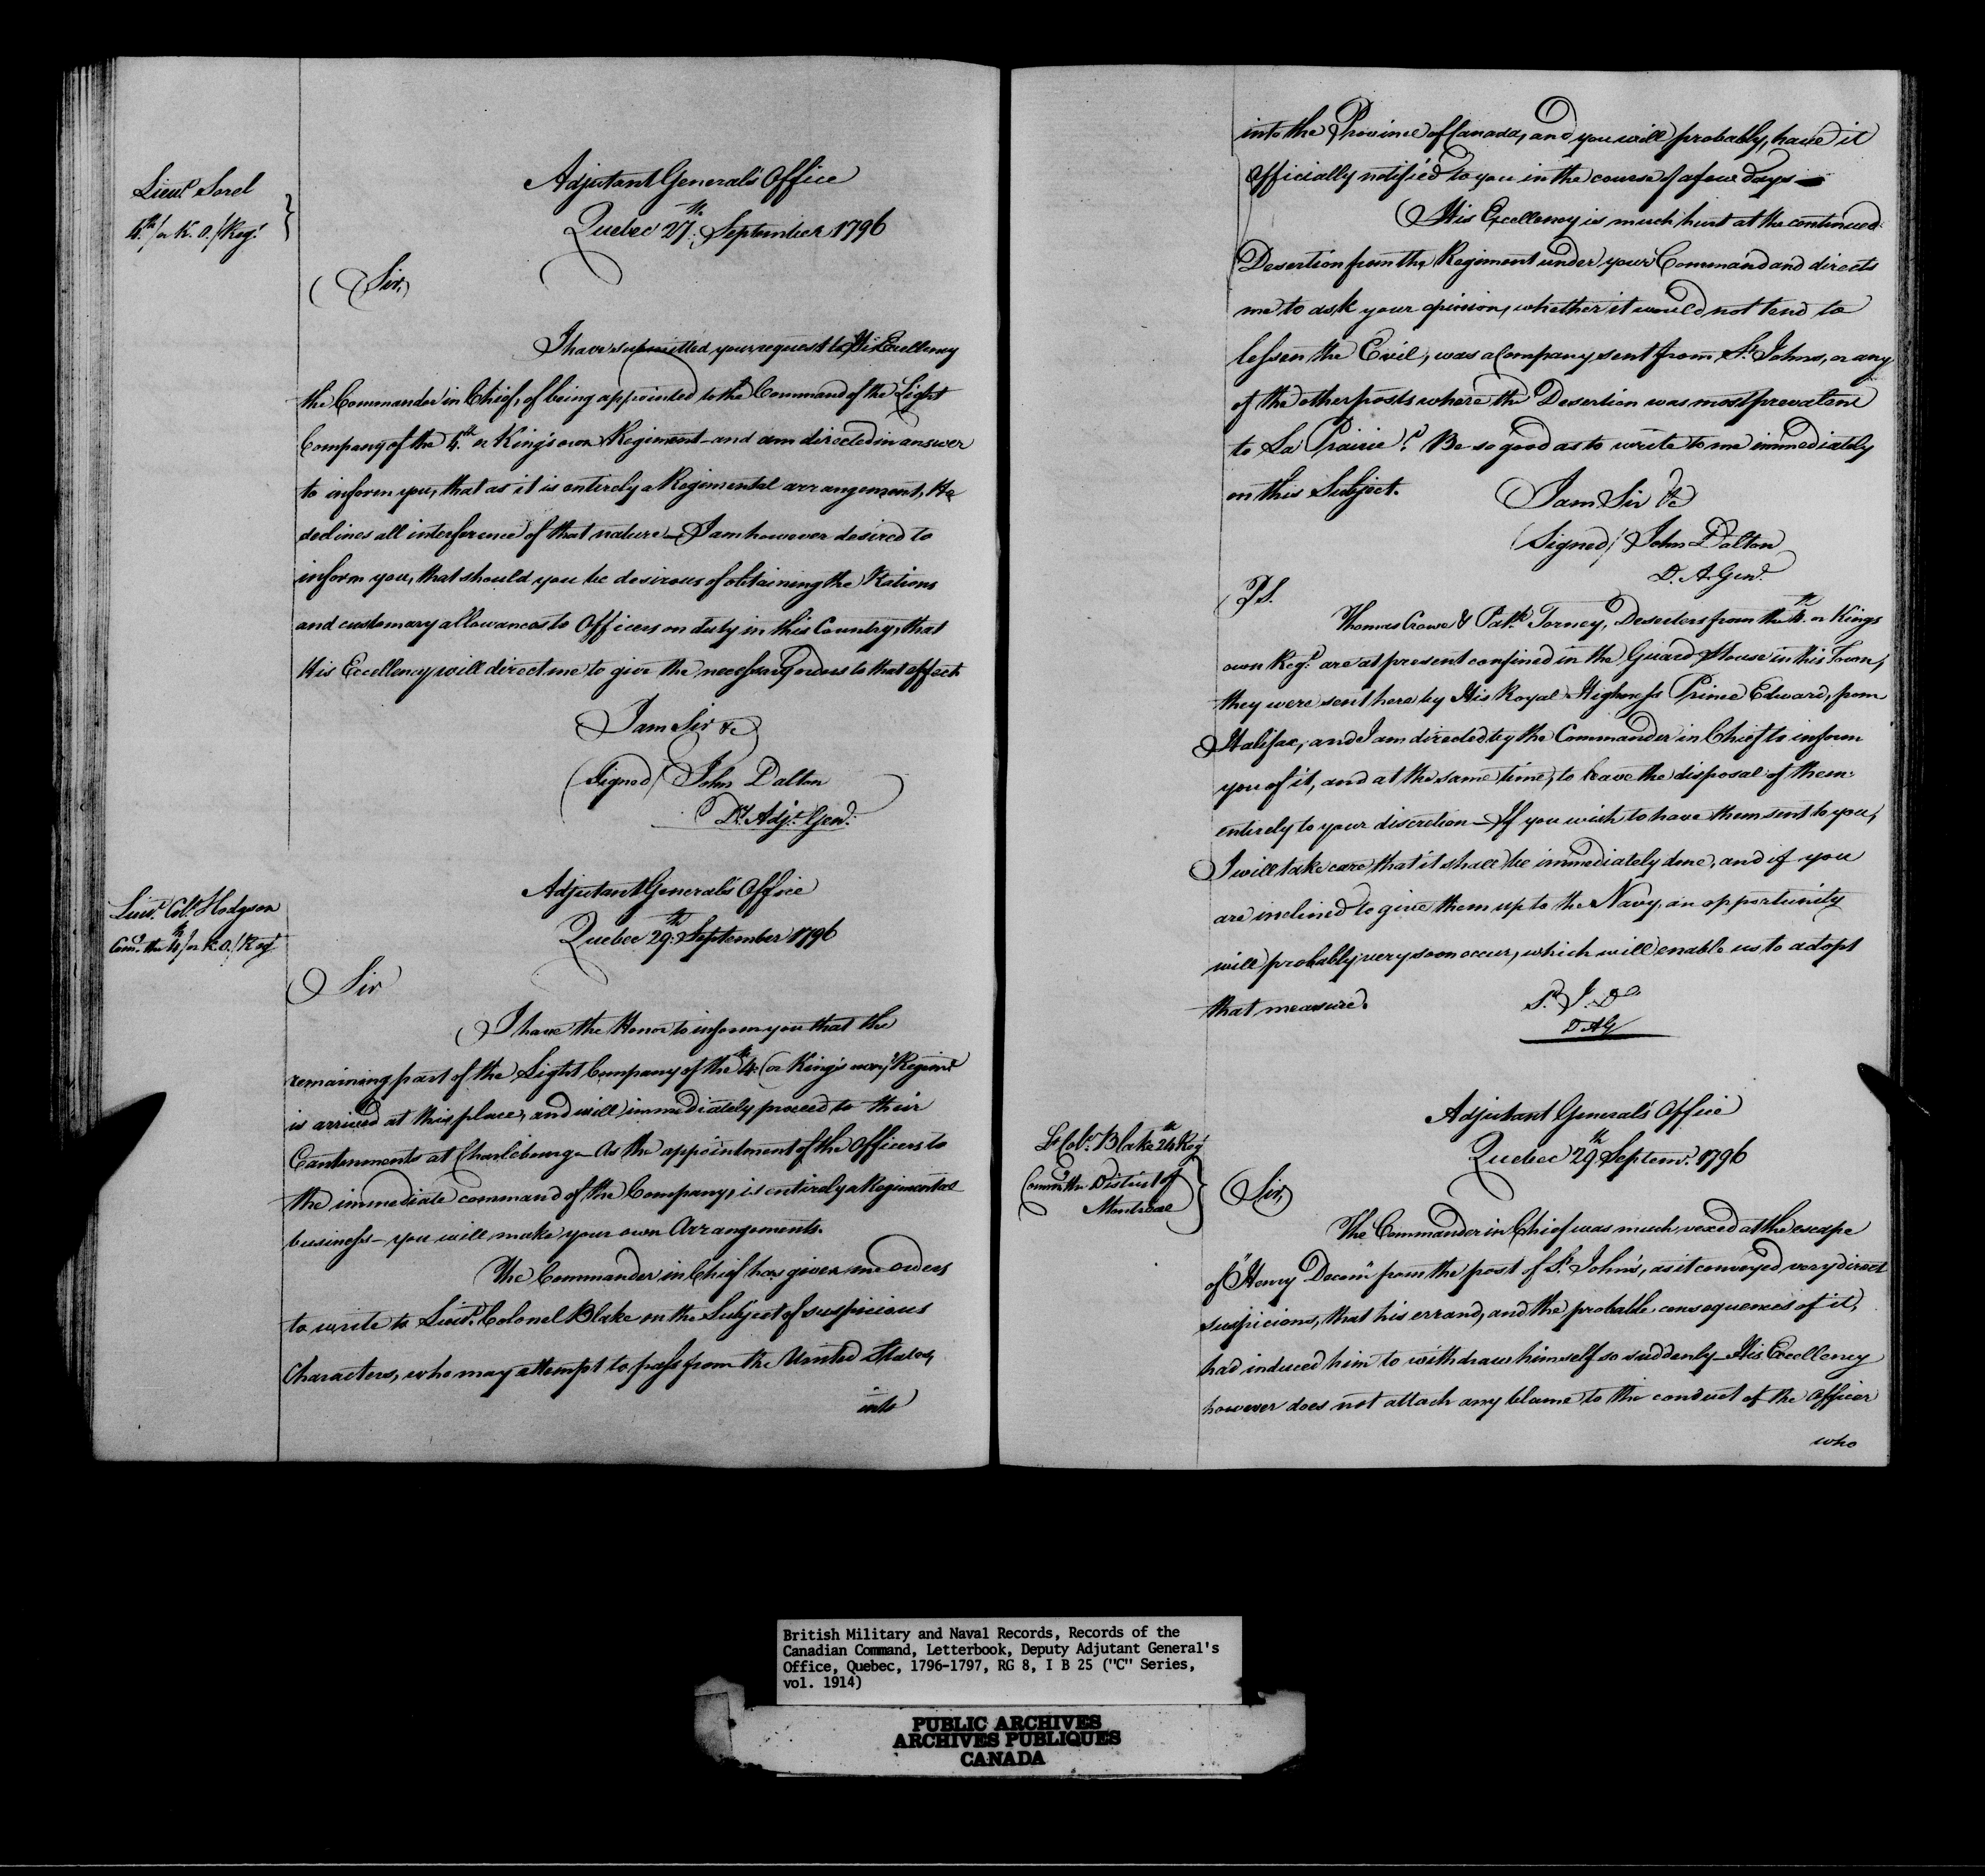 Lieut. Sorel
4th /or K. O./ Regt.
Adjutant General's Office
Quebec 27th September 1796
Sir,
I have submitted your request to His Excellency
the Commander in Chief, of being appointed to the Command of the Light
Company of the 4th or King's own Regiment - and am directed in answer
to inform you, that as it is entirely a Regimental arrangement, He
declines all interference of that nature - I am however desired to
inform you, that should you be desirous of obtaining the Rations
and customary allowances to Officers on duty in this Country, that
His Excellency will direct me to give the necessary orders to that effect
I am Sir &c
(Signed) John Dalton
Dy. Adjt. Genl.
Lieut. Colo. Hodgson
Comg. the 4th /or K.O./ Regt
Adjutant General's Office
Quebec 29th September 1796
Sir
I have the Honor to inform you that the
remaining part of the Light Company of the 4th (or King's own) Regiment
is arrived at this place, and will immediately proceed to their
Cantonments at Charlebourg - As the appointment of the Officers to
the immediate command of the Company, is entirely a Regimental
business - you will make your own Arrangements.
The Commander in Chief has given me orders
to write to Lieut. Colonel Blake on the Subject of suspicious
Characters, who may attempt to pass from the United States,
into
into the Province of Canada, and you will probably, have it
Officially notified to you in the course of a few days -
His Excellency is much hurt at the continued
Desertion from the Regiment under your Command and directs
me to ask your opinion, whether it would not tend to
lessen the Evil, was a Company sent from St Johns, or any
of the other posts where the Desertion was most prevalent
to La Prairie? Be so good as to write to me immediately
on this Subject.
I am Sir &c
(Signed) John Dalton
D. A. Genl.
P.S.
Thomas Crowe & Patk. Torney, Deserters from the 4th or Kings
own Regt. are at present confined in the Guard House in this Town,
they were sent here by His Royal Highness Prince Edward, from
Halifax, and I am directed by the Commander in Chief to inform
you of it, and at the same time, to leave the disposal of them
entirely to your discretion - If you wish to have them sent to you,
I will take care that it shall be immediately done, and if you
are inclined to give them up to the Navy, an opportunity
will probably very soon occur, which will enable us to adopt
that measure.
J. D
D A G
Lt Colo. Blake 24th Regt
Commg the District of
Montreal
Adjutant General's Office
Quebec 29th Septemr. 1796
Sir,
The Commander in Chief was much vexed at the escape
of "Henry Decom" from the post of St. John's, as it conveyed very direct
suspicions, that his errand, and the probable consequences of it,
had induced him to withdraw himself so suddenly - His Excellency
however does not attach any blame to the conduct of the Officer
who
British Military and Naval Records, Records of the
Canadian Command, Letterbook, Deputy Adjutant General's
Office, Quebec, 1796-1797, RG 8, I B 25 ("C" Series,
vol. 1914)
PUBLIC ARCHIVES
ARCHIVES PUBLIQUES
CANADA